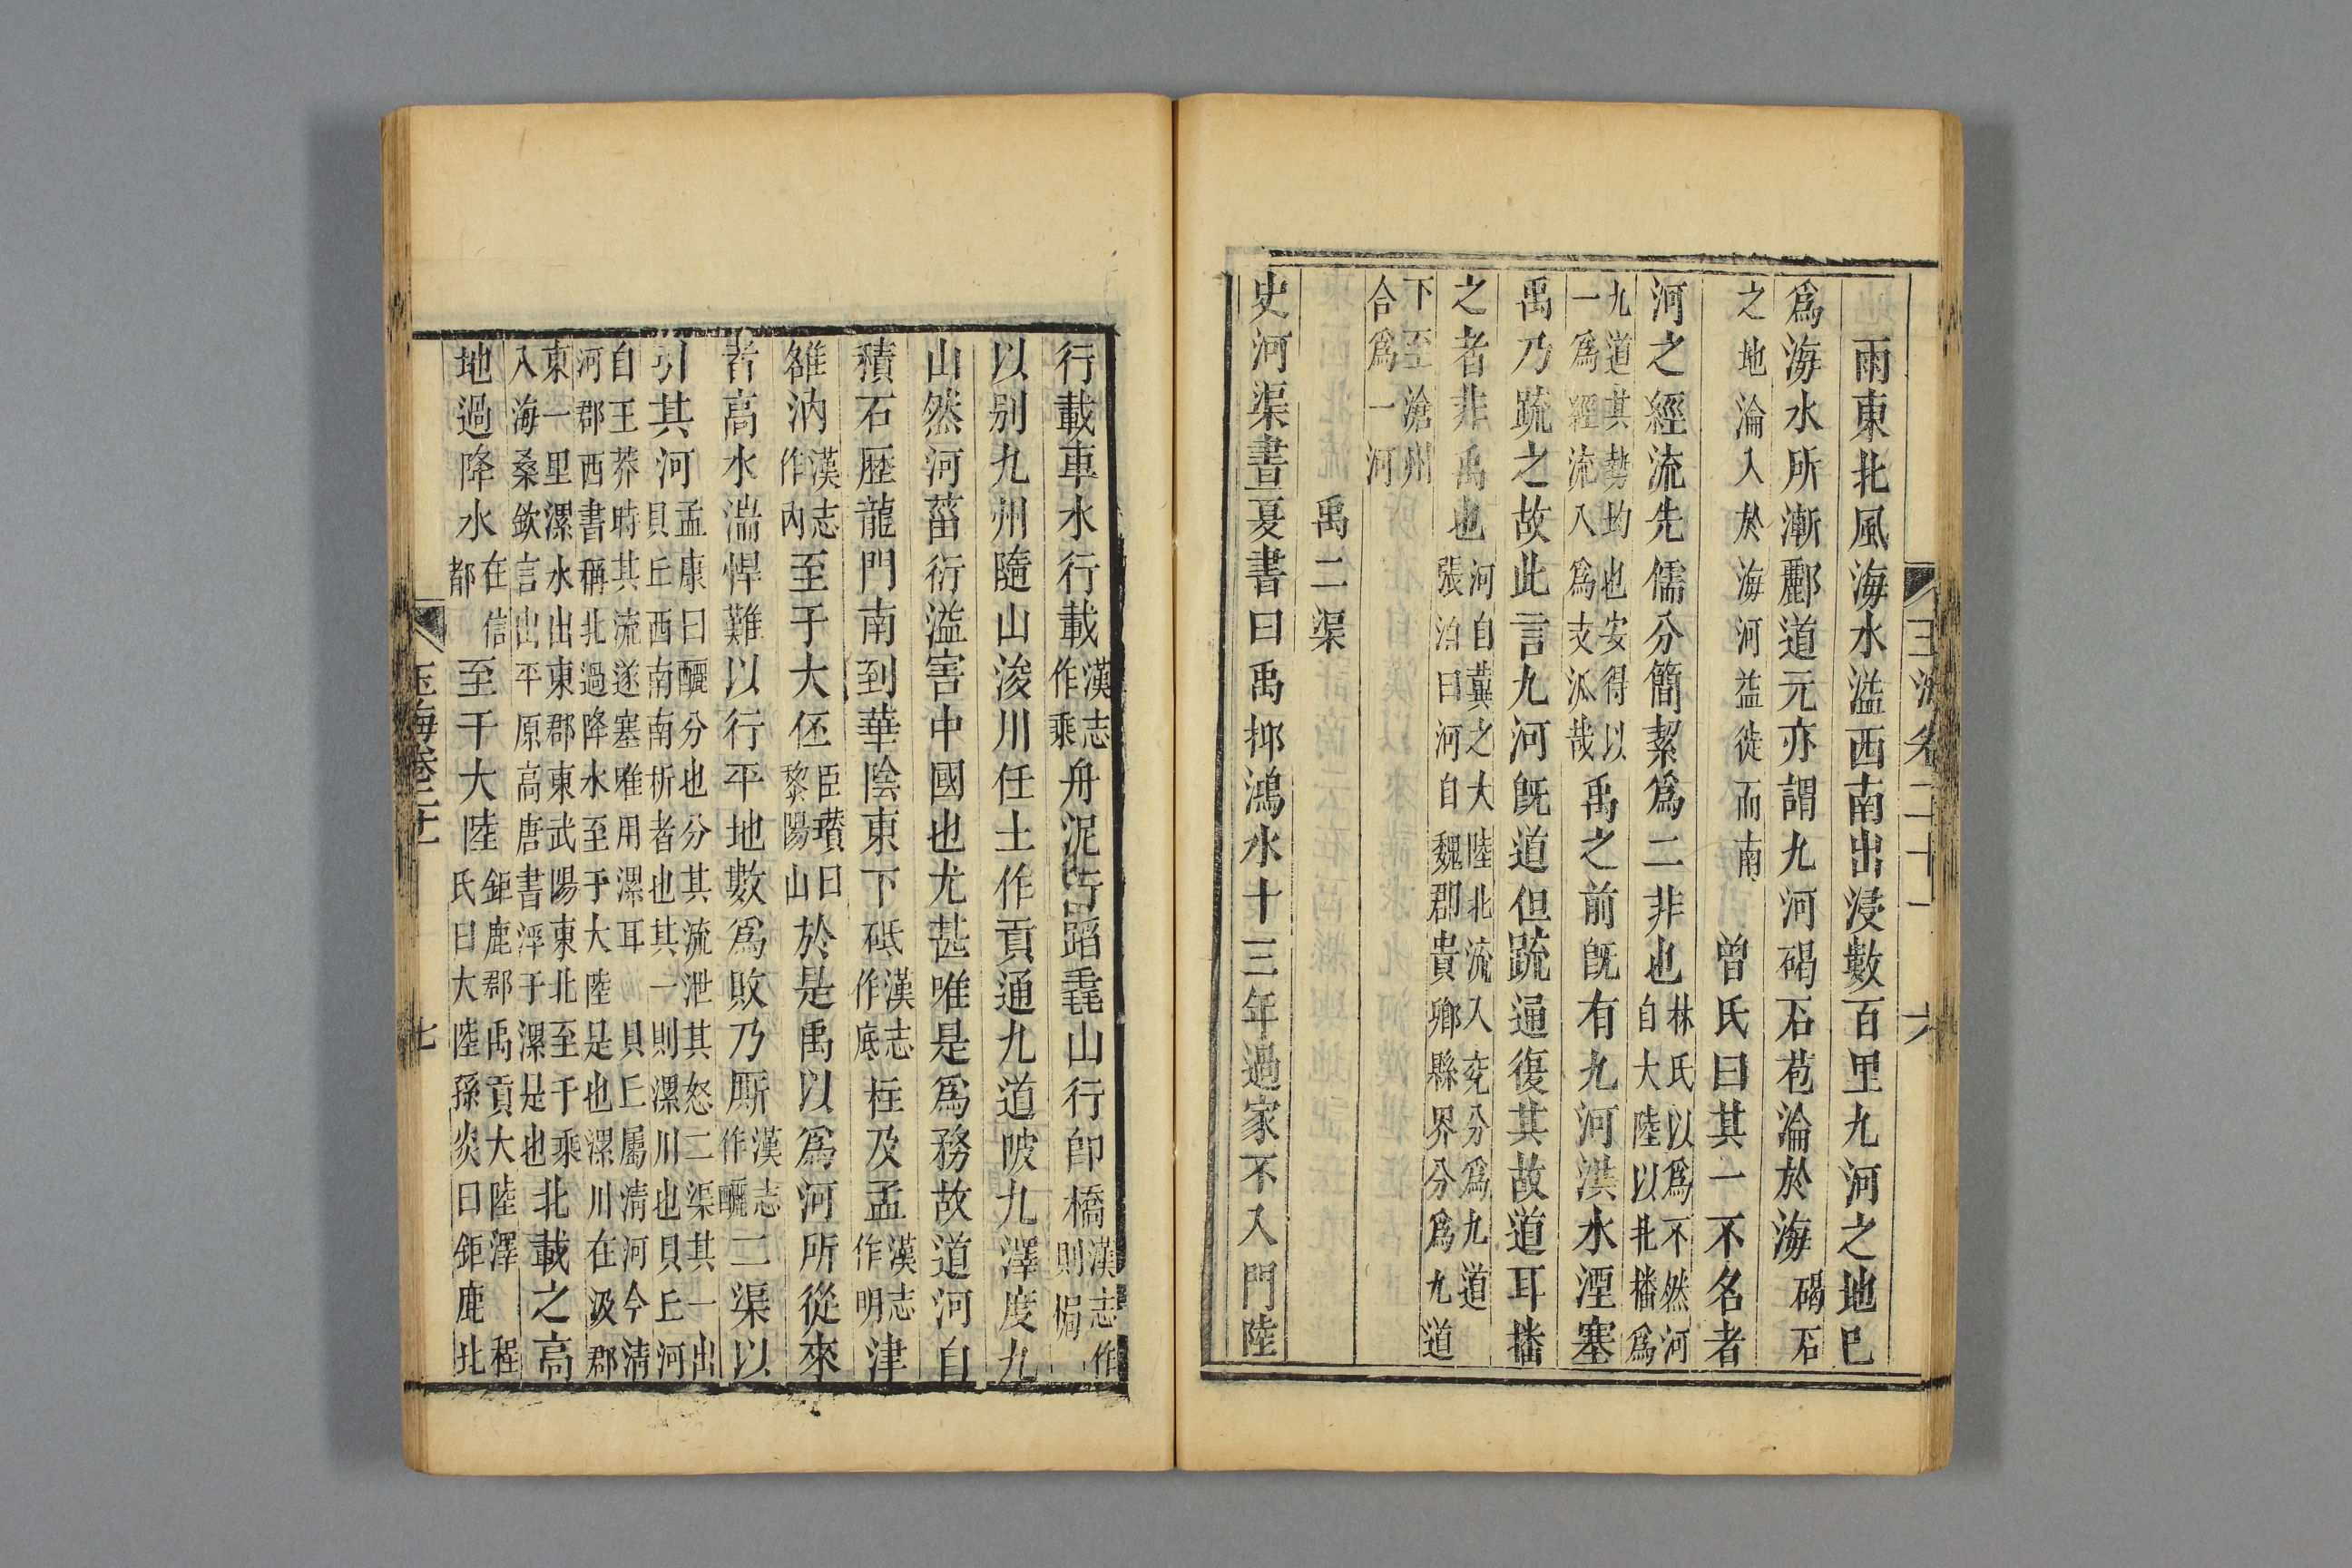 玉海卷二十一 六
雨東北風海水溢西南出浸數百里九河之地巳
爲海水所漸酈道元亦謂九河碣石苞淪於海碣石
之地淪入於海河益徙而南曾氏曰其一不名者
河之經流先儒分簡絜爲二非也林氏以爲不然河
自大陸以北播爲
九道其勢均也安得以
一爲經流八爲支派哉禹之前旣有九河洪水湮塞
禹乃䟽之故此言九河旣道但䟽通復其故道耳播
之者非禹也河自冀之大陸北流入兗分爲九道
張洎曰河自魏郡貴鄉縣界分爲九道
下至滄州
合爲一河
禹二渠
史河渠書夏書曰禹抑鴻水十三年過家不入門陸
行載車水行載漢志
作乘舟泥行蹈毳山行卽橋漢志作
則梮
以别九州隨山浚川任土作貢通九道陂九澤度九
山然河菑衍溢害中國也尤甚唯是爲務故道河自
積石歴龍門南到華陰東下砥漢志
作底柱及孟漢志
作明津
雒汭漢志
作內至于大伾臣瓚曰
黎陽山於是禹以爲河所從來
者高水湍悍難以行平地數爲敗乃厮漢志
作釃二渠以
引其河孟康曰釃分也分其流泄其怒二渠其一出
貝丘西南南析者也其一則漯川也貝丘河
自王莽時其流遂塞唯用漯耳 貝丘屬清河今清
河郡西書稱北過降水至于大陸是也漯川在汲郡
東一里漯水出東郡東武陽東北至千乘
入海桑欽言出平原高唐書浮于漯是也北載之高
地過降水在信
都至于大陸鉅鹿郡禹貢大陸澤 程
氏曰大陸孫炎曰鉅鹿北
玉海卷二十一 七